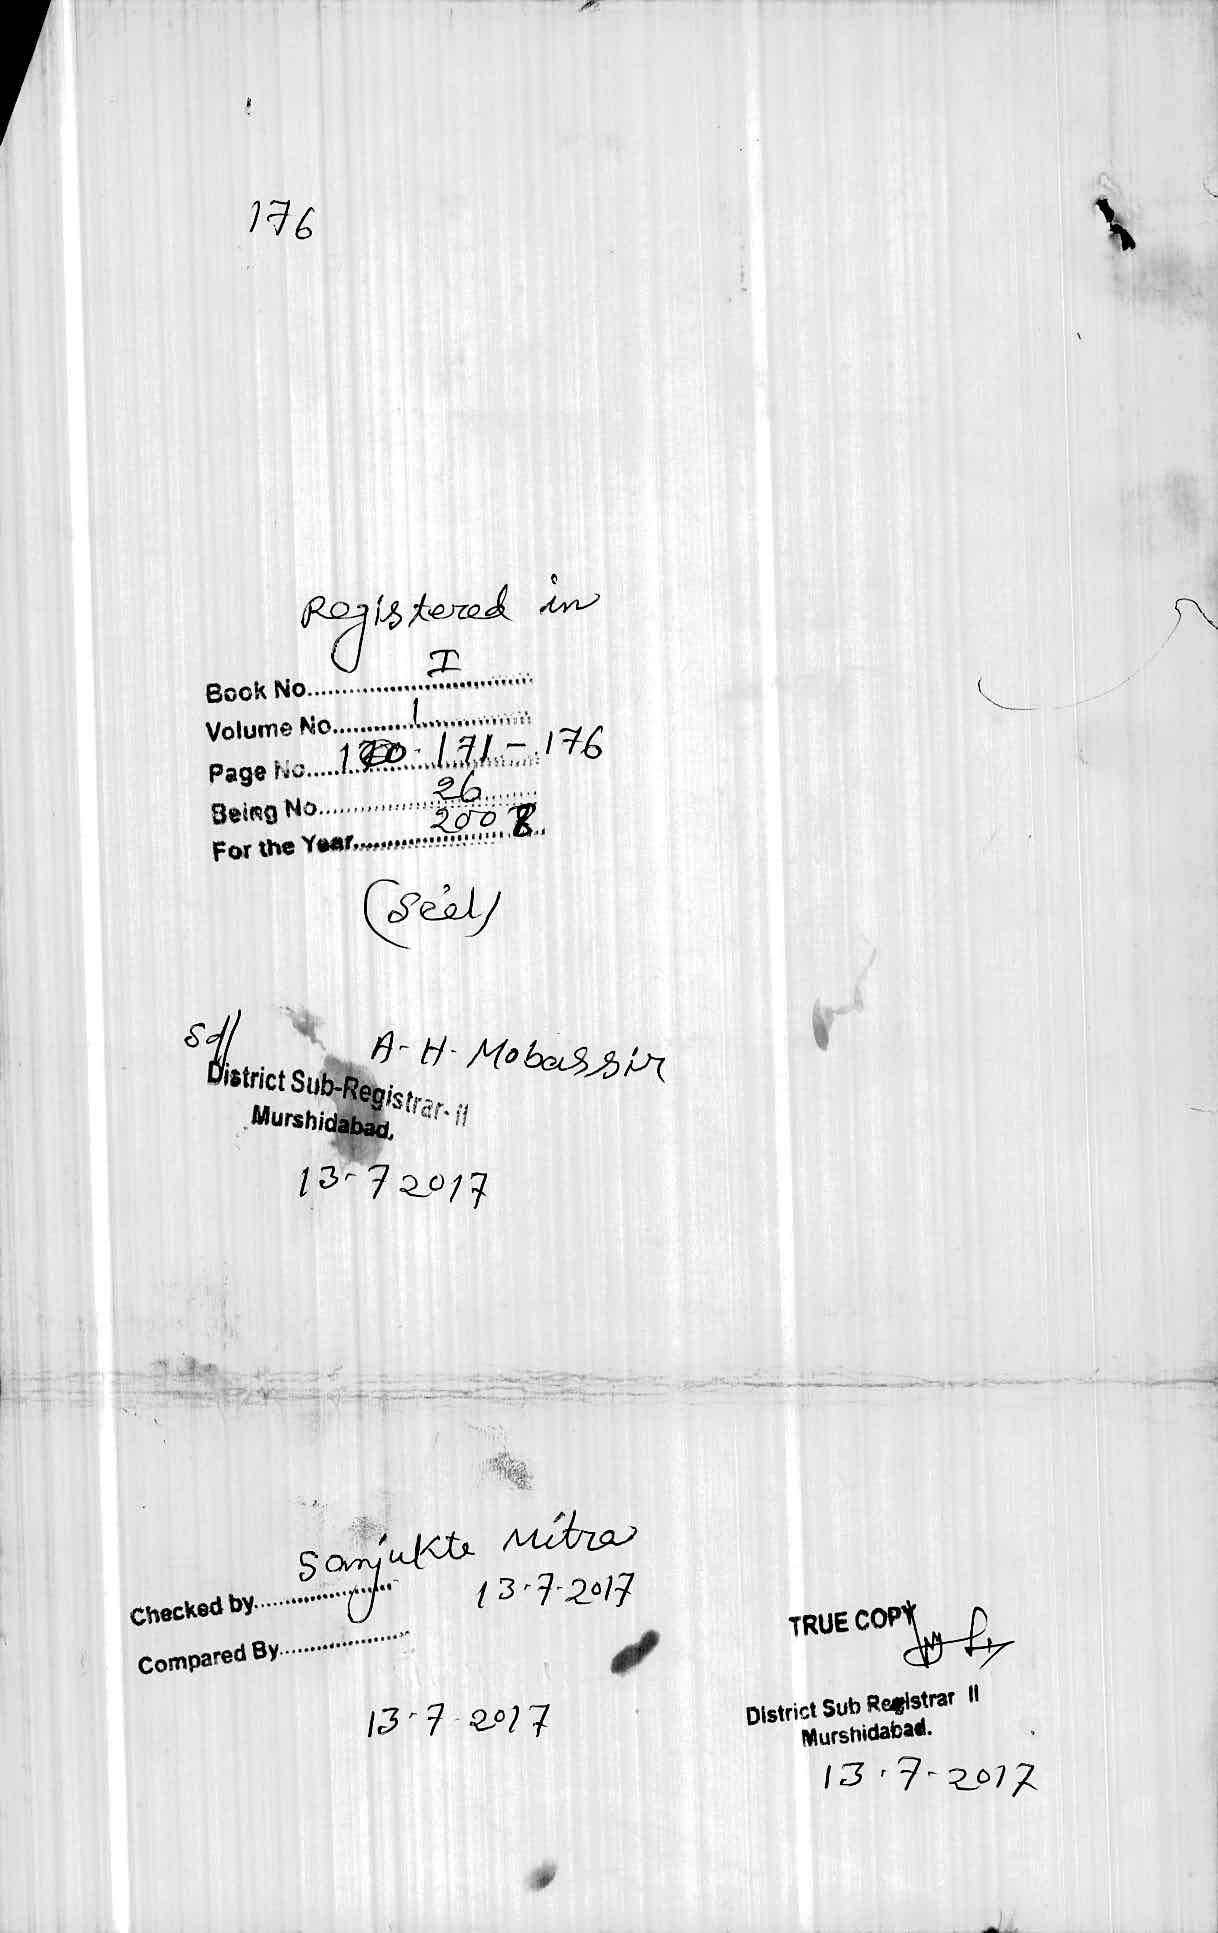 176
Registered in
Book No. I
Volume No. 1
Page No. 171 - 176
Being No. 26
For the Year. 2008
(Seal)
Sd/ A-H-Mobassir
District Sub-Registrar-II
Murshidabad,
13-7 2017
Sanjukta Mitra
Checked by. 13-7-2017
Compared By.
13-7-2017
TRUE COPY
District Sub Registrar II
Murshidabad.
13-7-2017